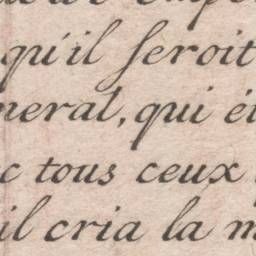 qu'il seroit
neral, qui ét
c tous ceux
il cria la m